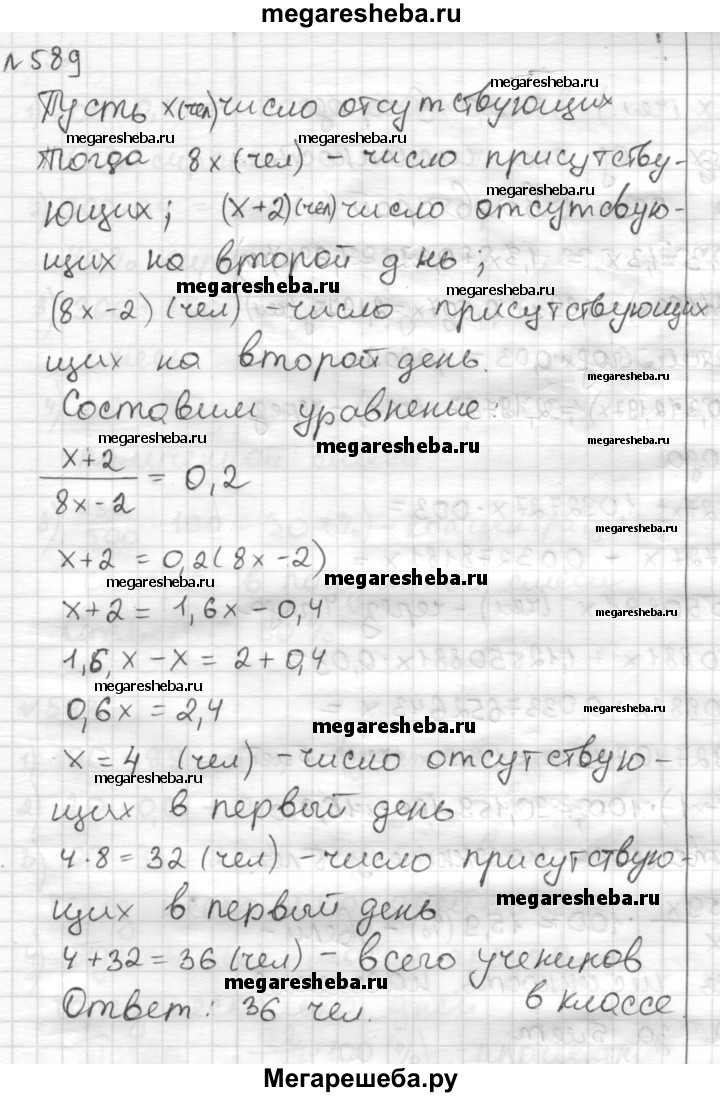 megaresheba.ru
№589
megaresheba.ru
Пусть x(чел) число отсутствующих
megaresheba.ru megaresheba.ru
Тогда 8x (чел) - число присутству-
megaresheba.ru
ющих; (x+2)(чел) число отсутсвую-
щих на второй день;
megaresheba.ru megaresheba.ru
(8x-2) (чел) - число присутствующих
щих на второй день.
megaresheba.ru
Составим уравнение:
megaresheba.ru megaresheba.ru megaresheba.ru
x+2
/ 8x-2 = 0,2
megaresheba.ru
x+2 = 0,2(8x-2)
megaresheba.ru megaresheba.ru
x+2 = 1,6x - 0,4
megaresheba.ru
1,6, x - x = 2 + 0,4
megaresheba.ru
0,6x = 2,4
megaresheba.ru megaresheba.ru
x = 4 (чел) - число отсутствую-
megaresheba.ru
щих в первый день
4·8 = 32 (чел) - число присутствую-
megaresheba.ru
щих в первый день
4+32 = 36 (чел) - всего учеников
megaresheba.ru
в классе.
Ответ: 36 чел.
Мегарешеба.ру